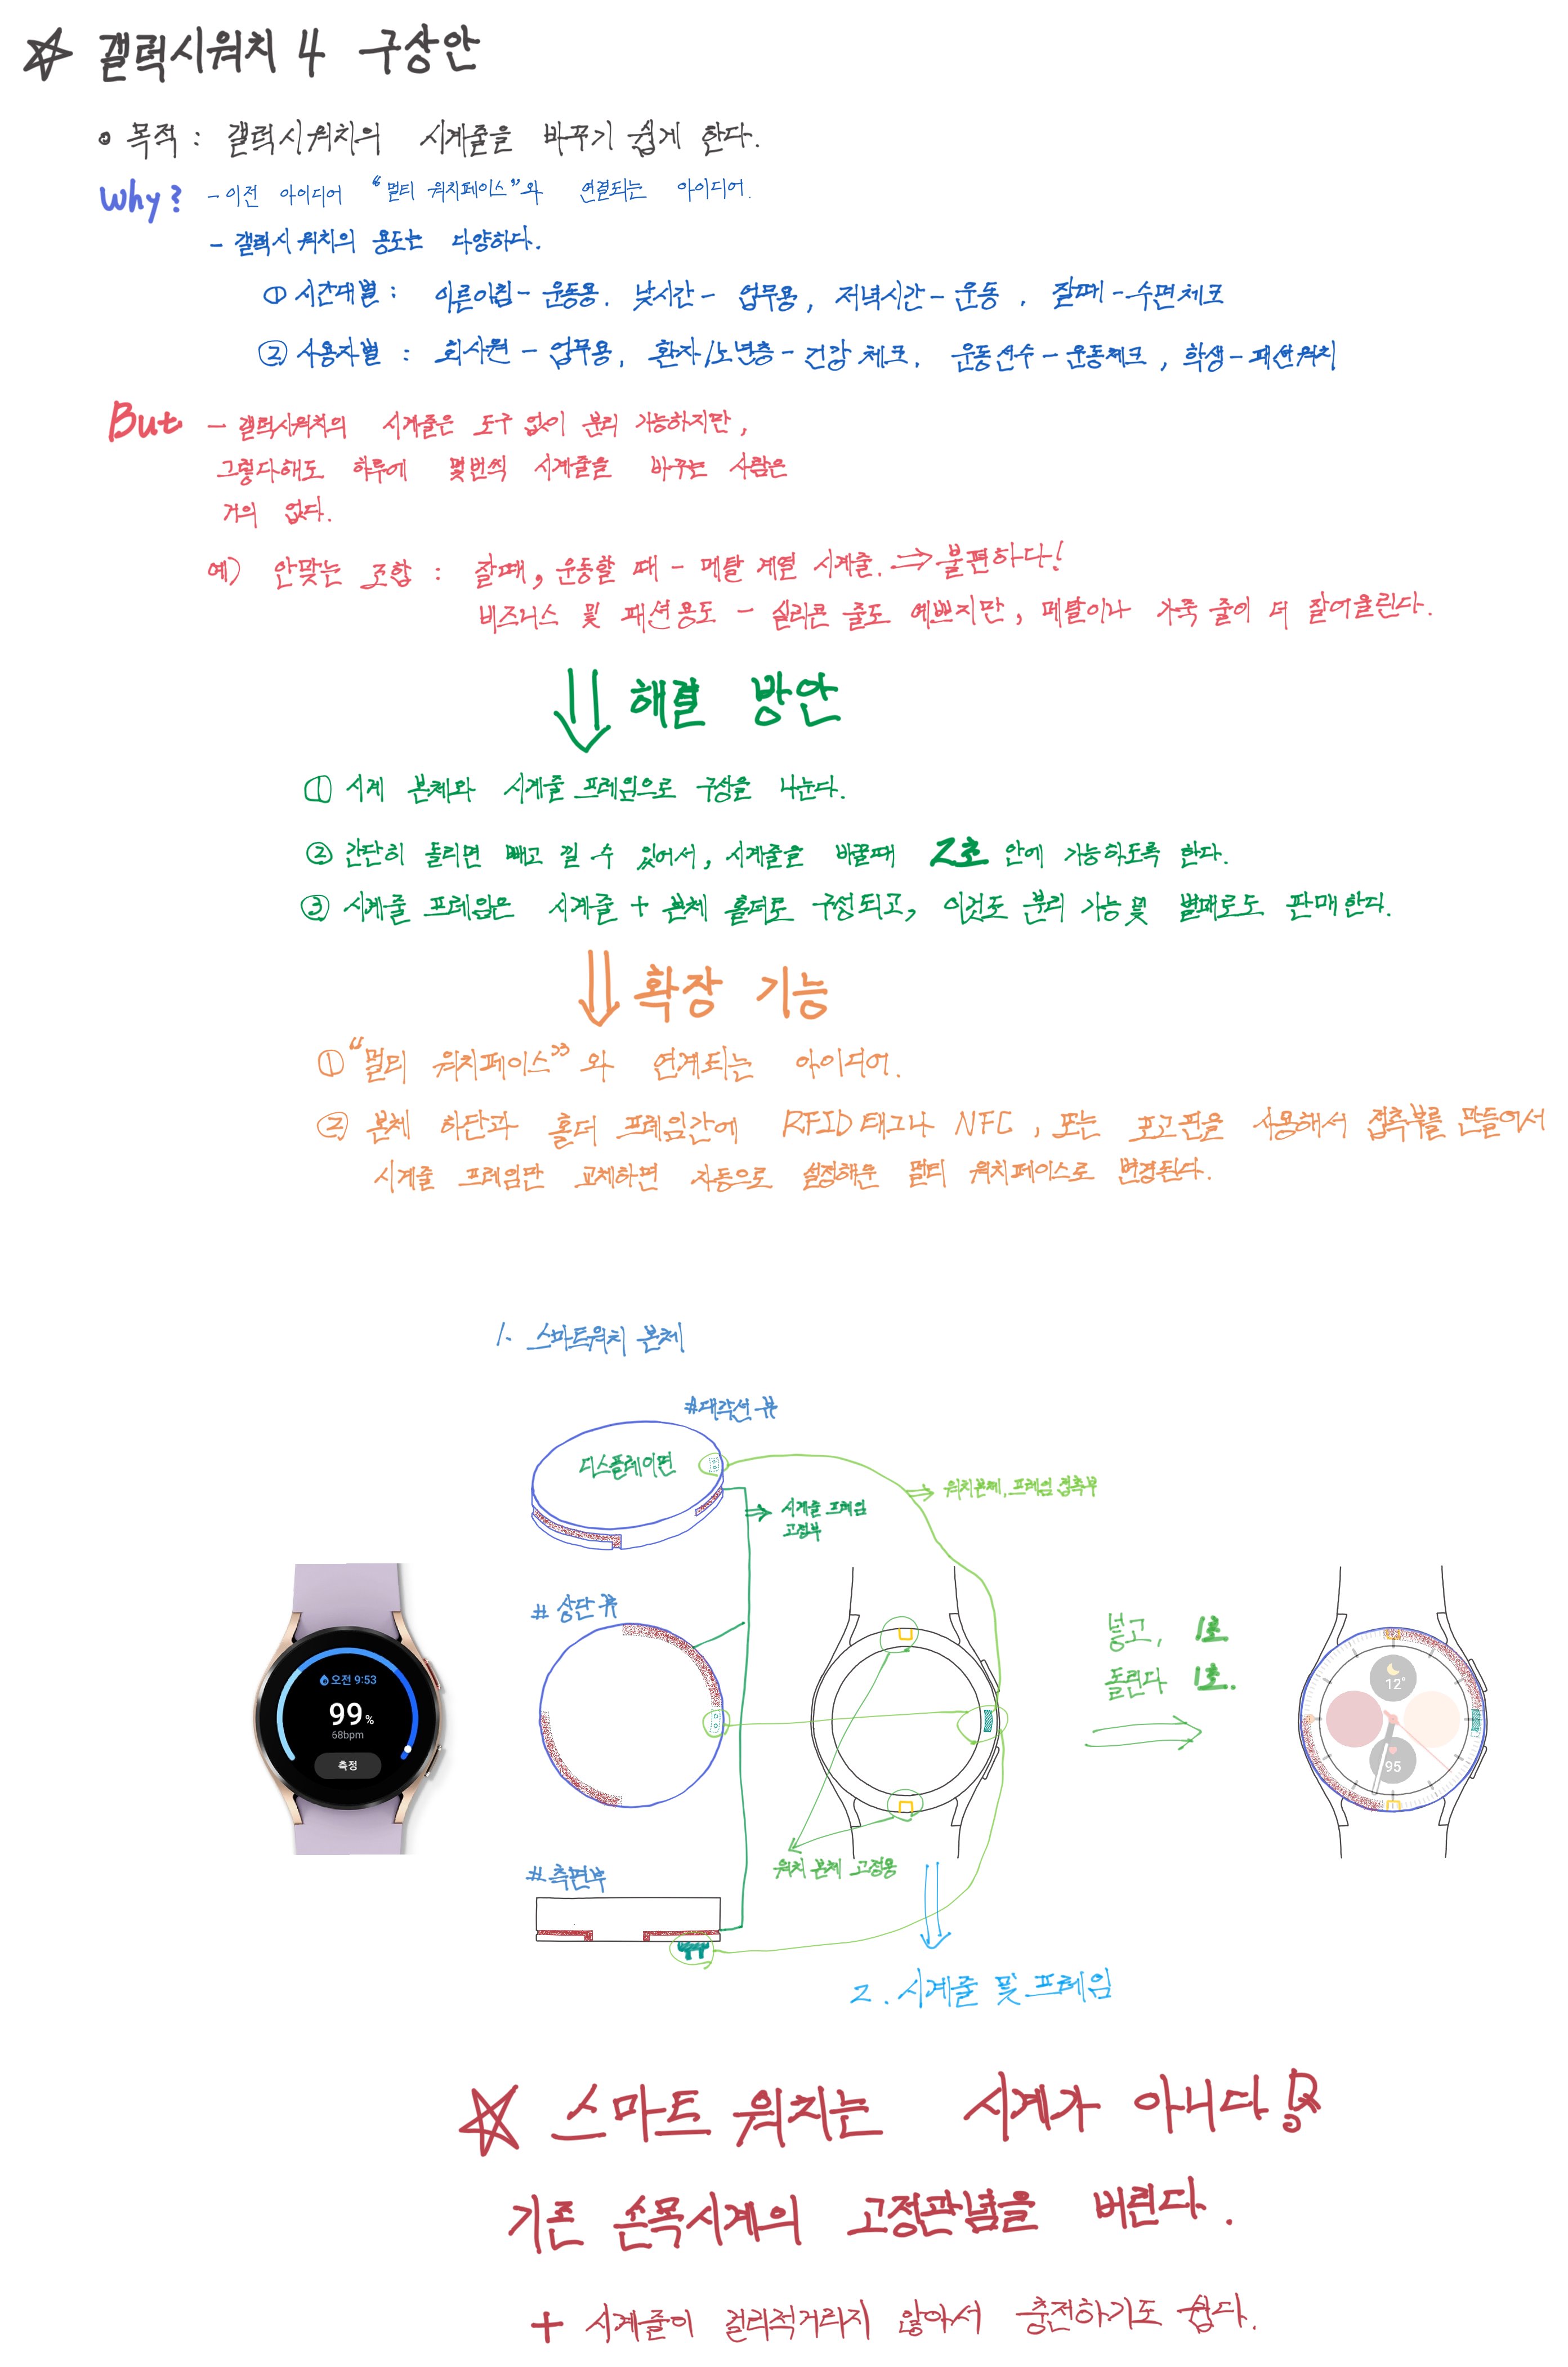 ☆ 갤럭시워치 4 구상안
◦ 목적 : 갤럭시워치의 시계줄을 바꾸기 쉽게 한다.
Why? - 이전 아이디어 “멀티 워치페이스”와 연결되는 아이디어.
- 갤럭시 워치의 용도는 다양하다.
① 시간대별 : 이른아침 - 운동용. 낮시간 - 업무용, 저녁시간 - 운동. 잘때 - 수면체크
② 사용자별 : 회사원 - 업무용, 환자/노년층 - 건강 체크. 운동선수 - 운동체크, 학생 - 패션워치
But - 갤럭시워치의 시계줄은 도구 없이 분리 가능하지만,
그렇다해도 하루에 몇번씩 시계줄을 바꾸는 사람은
거의 없다.
예) 안맞는 조합 : 잘때, 운동할 때 - 메탈 계열 시계줄. ⇒ 불편하다!
비즈니스 및 패션용도 - 실리콘 줄도 예쁘지만, 메탈이나 가죽 줄이 더 잘어울린다.
해결 방안
① 시계 본체와 시계줄 프레임으로 구상을 나눈다.
② 간단히 돌리면 빼고 낄 수 있어서, 시계줄을 바꿀때 2초 안에 가능하도록 한다.
③ 시계줄 프레임은 시계줄 + 본체 홀더로 구성되고, 이것도 분리 가능 및 별패로도 판매한다.
확장 기능
① “멀티 워치페이스” 와 연계되는 아이디어.
② 본체 하단과 홀더 프레임간에 RFID태그나 NFC, 또는 포고핀을 사용해서 접촉부를 만들어서
시계줄 프레임만 교체하면 자동으로 설정해둔 멀티 워치페이스로 변경된다.
1. 스마트워치 본체
#대각선 뷰
디스플레이면
⇒ 시계줄 프레임
고정부
⇒ 워치본체, 프레임 접촉부
# 상단 뷰
오전 9:53
99%
68bpm
측정
넣고, 1초
돌린다 1초.
12°
95
워치 본체 고정용
# 측면부
2. 시계줄 및 프레임
☆ 스마트 워치는 시계가 아니다!
기존 손목시계의 고정관념을 버린다.
+ 시계줄이 걸리적거리지 않아서 충전하기도 쉽다.